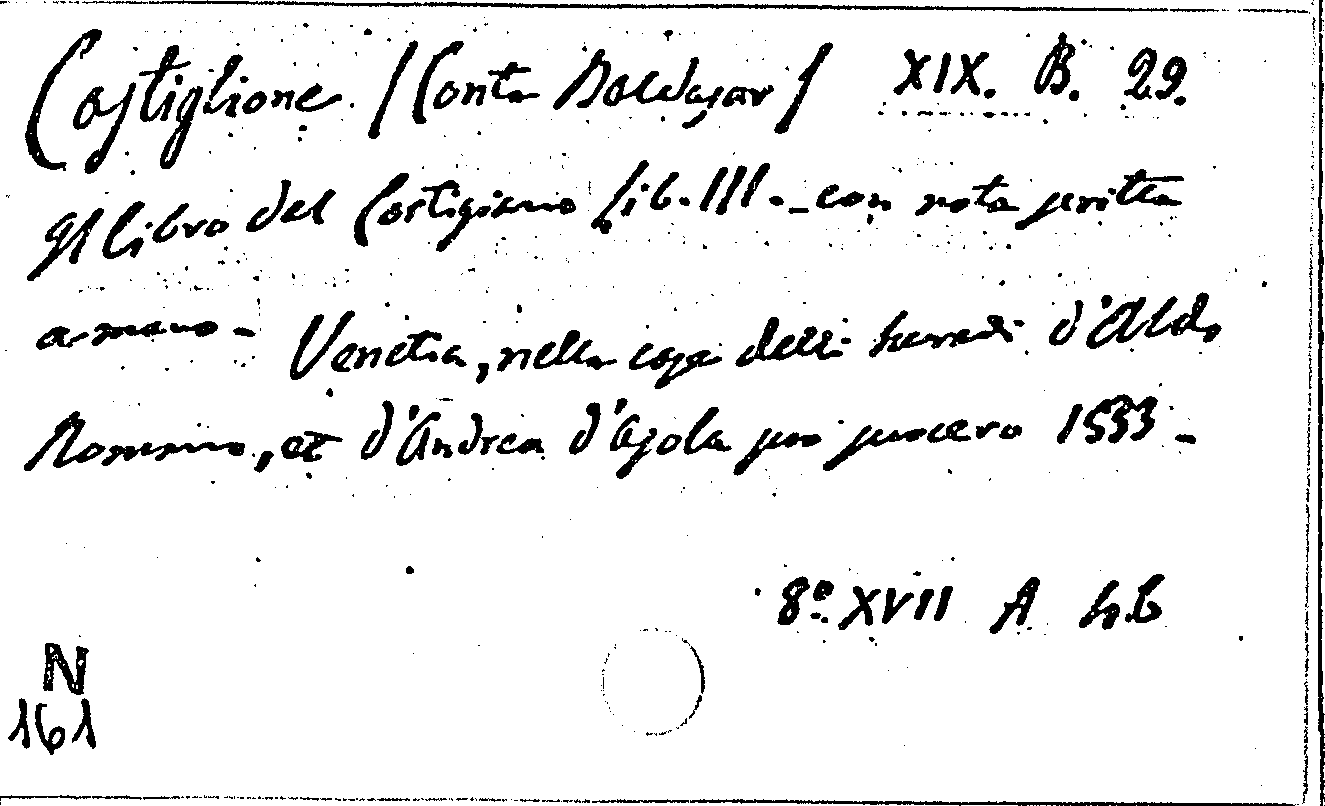 Castiglione /Conte Baldasar/ XIX. B. 29.
Il libro del Cortigiano Lib. III. - con nota scritta
a mano - Venetia, nella casa delli heredi d'Aldo
Romano, et d'Andrea d'Asola suo suocero 1533 -
8º XVII A 46
N
161